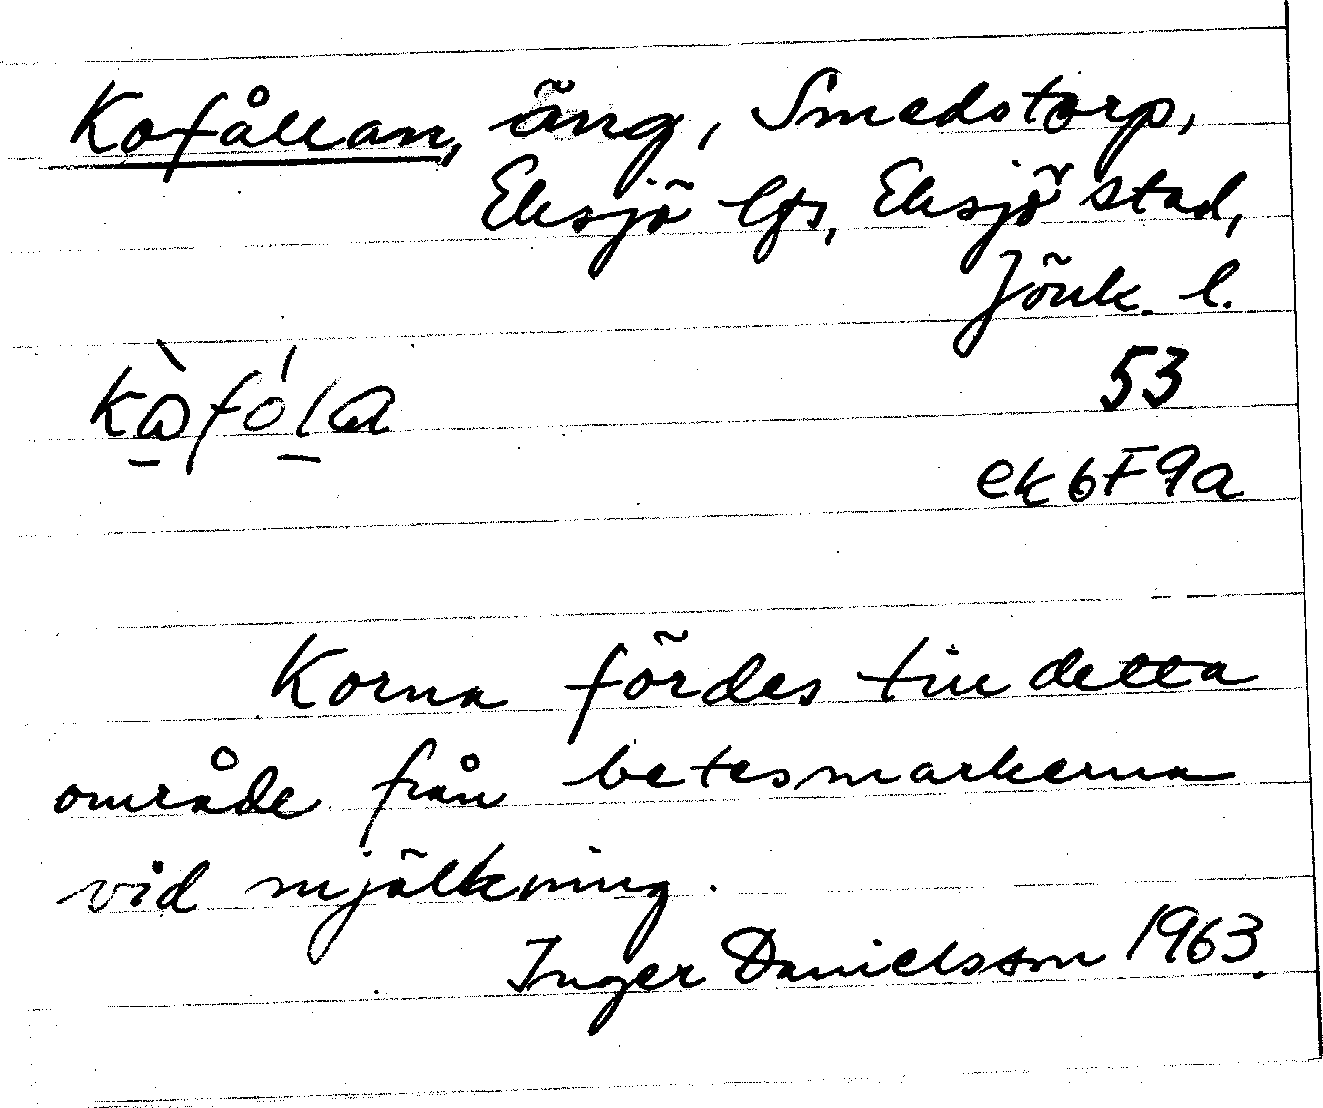 Kofållan, äng, Smedstorp,
Eksjö lfs, Eksjö stad,
Jönk. l.
53
kòfóla
ek 6F9a
Korna fördes till detta
område från betesmarkerna
vid mjölkning.
Inger Danielsson 1963.